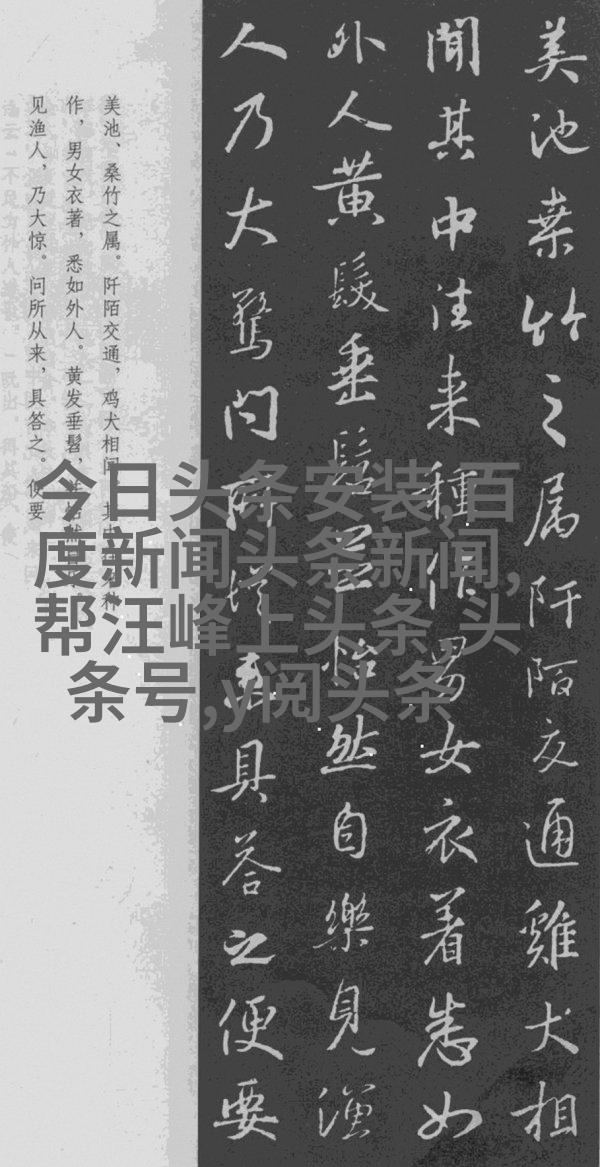 美池桒竹之属阡陌交通雞犬相
聞其中往来種作男女衣着悉如
外人黄髮垂髫並怡然自樂見漁
人乃大驚问所從来具答之便要
美池、桑竹之属。阡陌交通，鸡犬相闻。其中往来种
作，男女衣著，悉如外人。黄发垂髫，并怡然自乐。
见渔人，乃大惊。问所从来，具答之。便要
今日头条安装,百
度新闻头条新闻,
帮汪峰上头条,头
条号,y阅头条